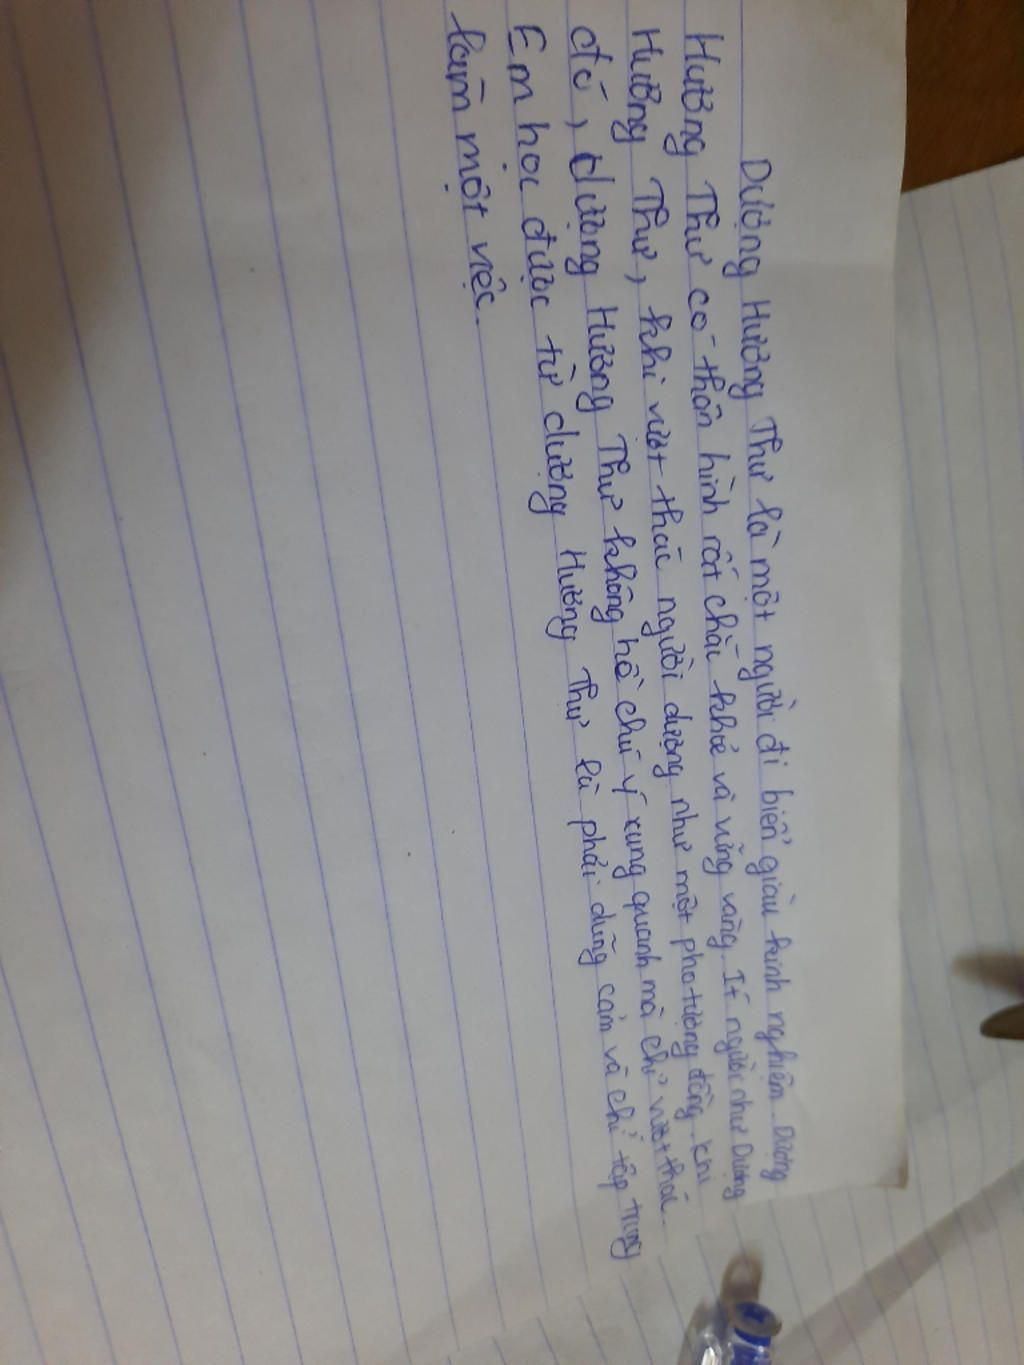 Dượng Hương Thư là một người đi biển giàu kinh nghiệm. Dượng
Hương Thư có thân hình rất chắc khoẻ và vững vàng. Ít người như Dượng
Hương Thư, khi vượt thác người dượng như một pho tượng đồng. Khi
đó, dượng Hương Thư không hề chú ý xung quanh mà chỉ vượt thác.
Em học được từ dượng Hương Thư là phải dũng cảm và chỉ tập trung
làm một việc.